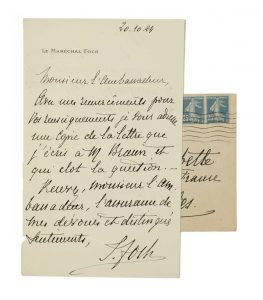 20.10.24
LE MARÉCHAL FOCH
Monsieur l'Ambassadeur,
Avec mes remerciements pour
vos renseignements je vous adresse
une Copie de la lettre que
j'écris à M. Braun et
qui clot la question.
Veuillez, Monsieur l'Am-
bassadeur, l'assurance de
mes dévoués et distingués
sentiments,
F. Foch
France